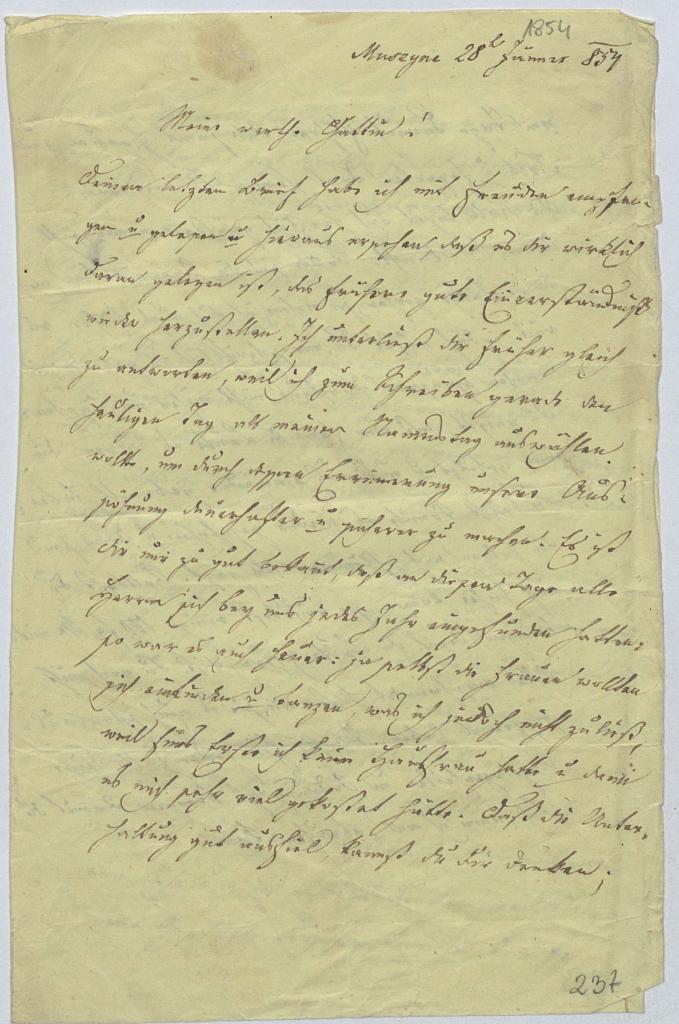 1854
Muszyna 28t Jänner 854
Meine werth. Gattin!
Deinen letzten Brief habe ich mit Freuden empfan-
gen u gelesen u hieraus ersehen, daß es dir wirklich
daran gelegen ist, das frühere gute Einverständniß
wieder herzustellen. Ich unterließ dir früher gleich
zu antworten, weil ich zum Schreiben gerade den
heutigen Tag als meinen Namenstag auswählen
wollte, um durch dessen Errinnerung unsere Aus-
söhnung dauerhafter u sicherer zu machen. Es ist
dir nur zu gut bekannt, daß an diesem Tage alle
Herrn sich bey uns jedes Jahr eingefunden hatten;
so war es auch heuer: ja selbst die Frauen wollten
sich einfinden u tanzen, was ich jedoch nicht zuließ,
weil fürs Erste ich keine Hausfrau hatte u dann
es mich sehr viel gekostet hätte. Daß die Unter-
haltung gut ausfiel, kannst du dir denken;
237